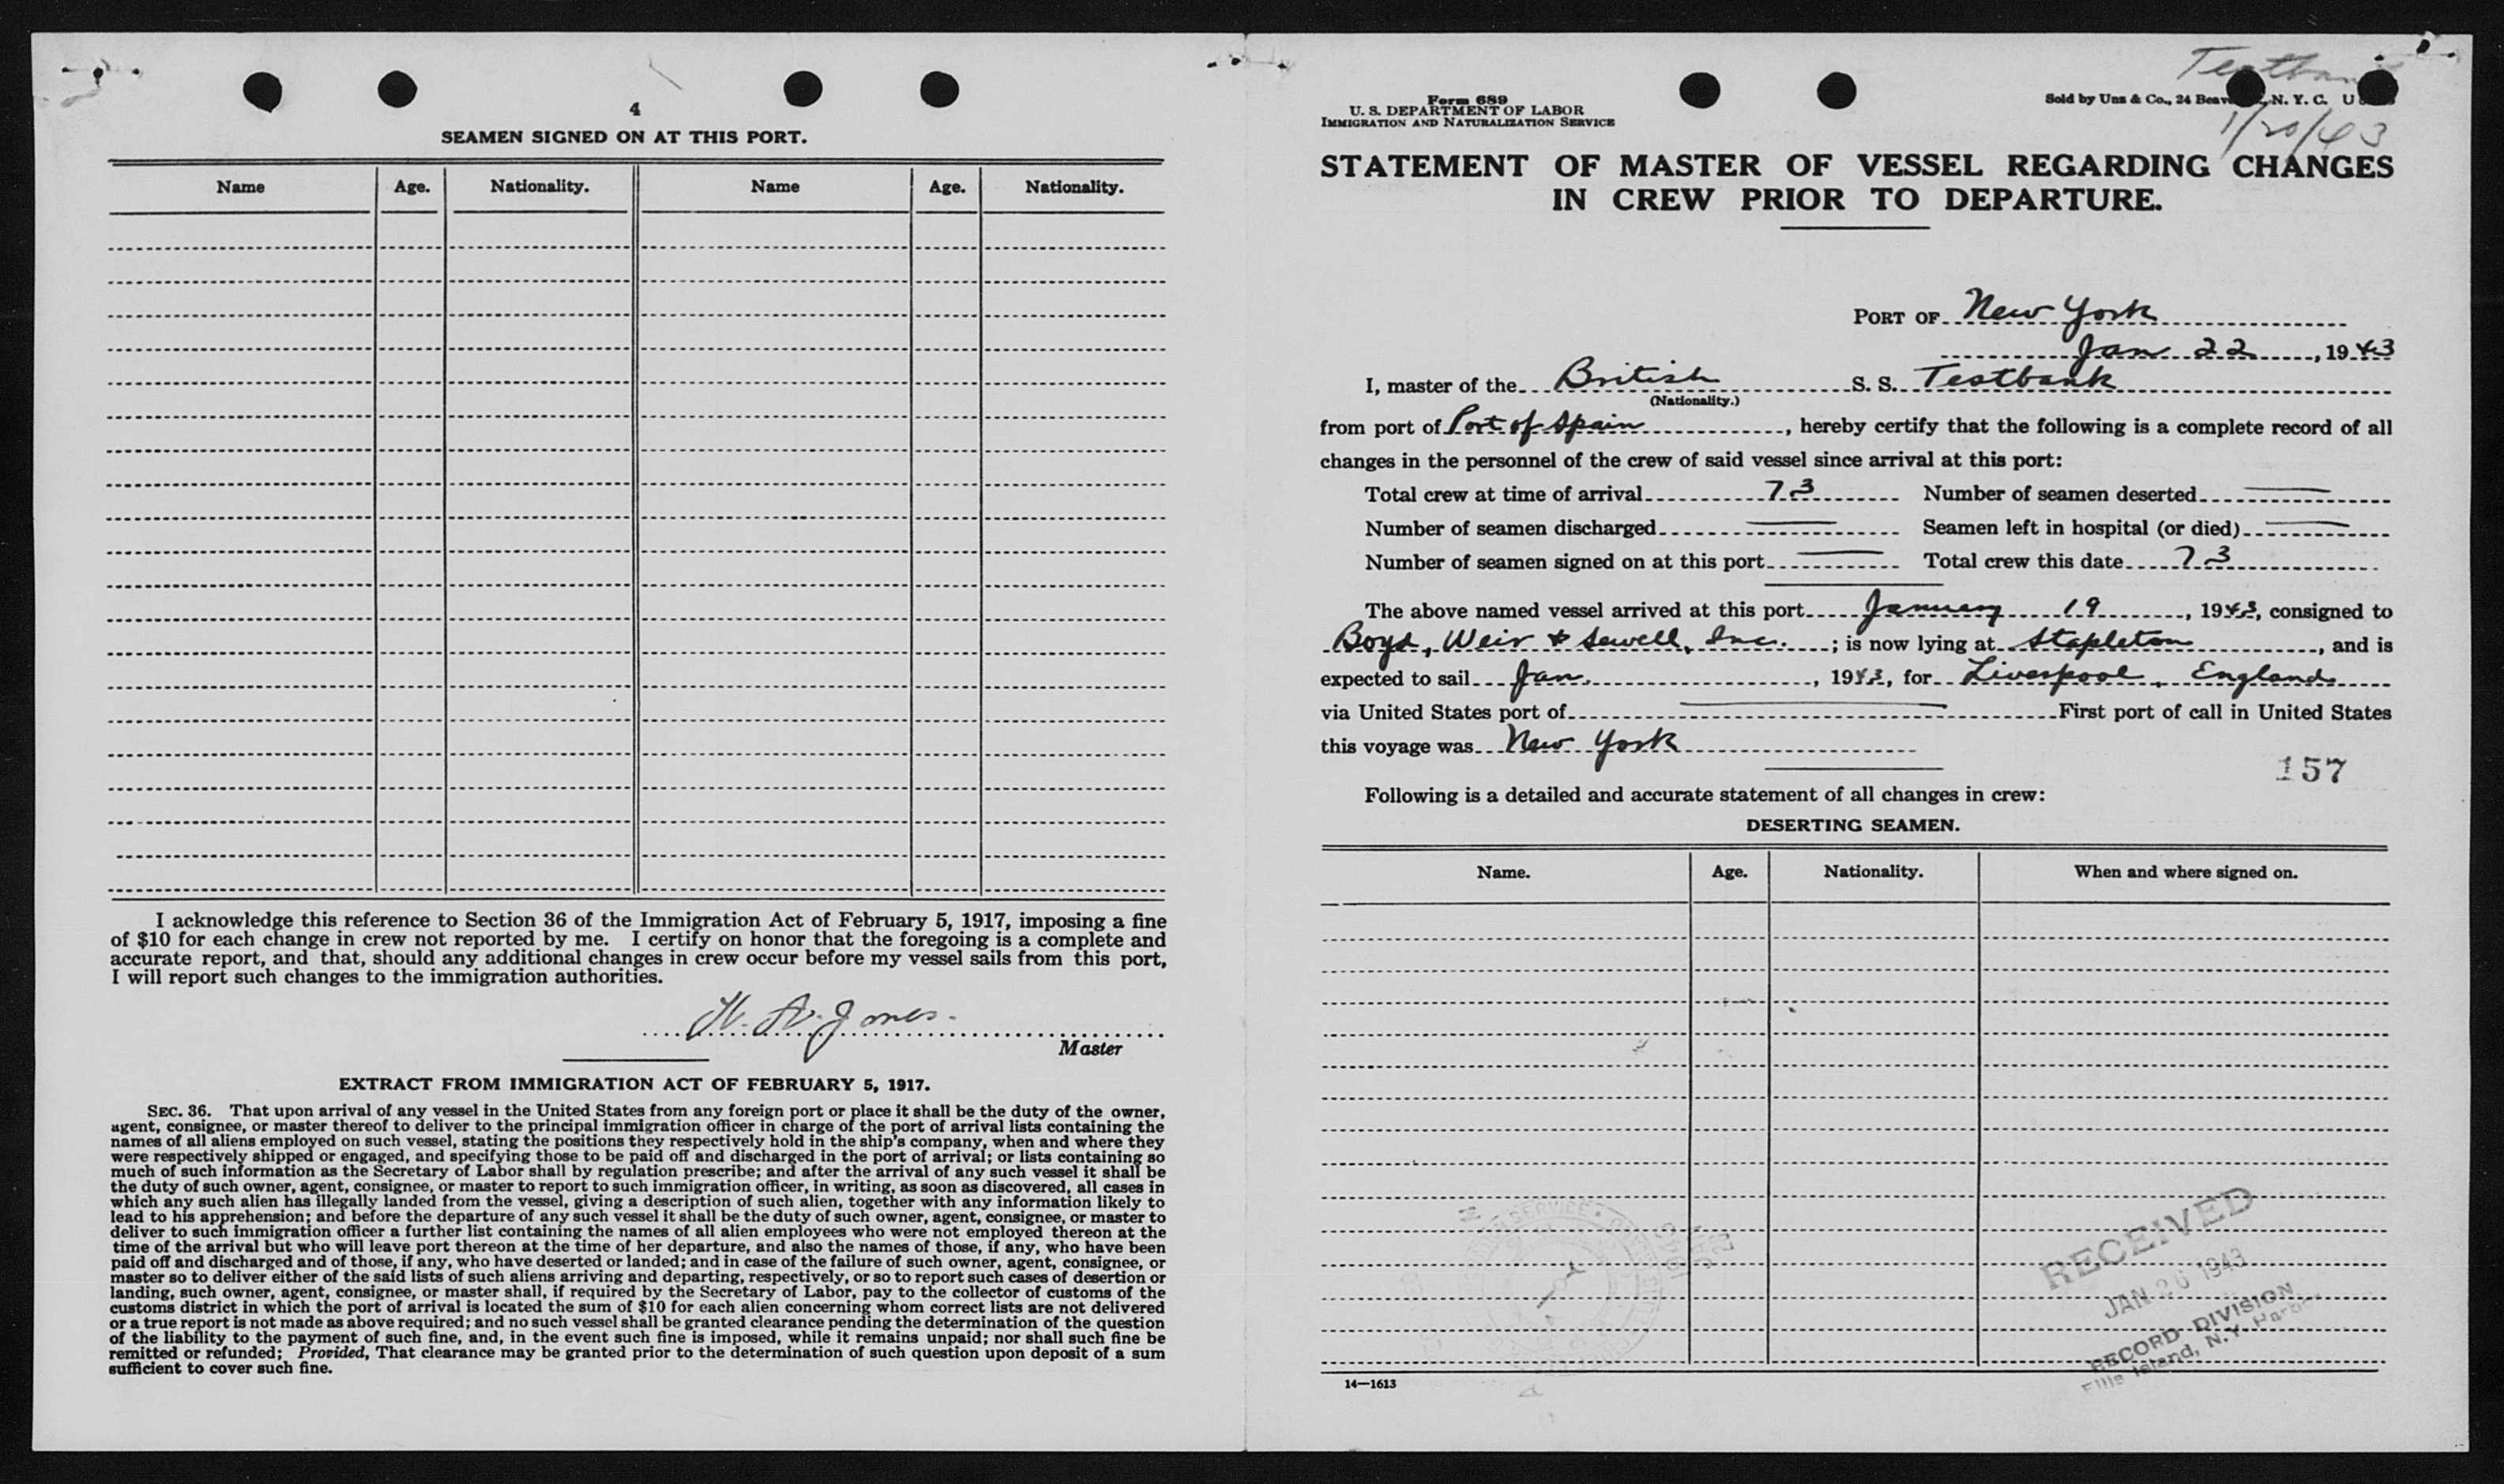 4
SEAMEN SIGNED ON AT THIS PORT.
Name Age. Nationality. Name Age. Nationality.
I acknowledge this reference to Section 36 of the Immigration Act of February 5, 1917, imposing a fine
of $10 for each change in crew not reported by me. I certify on honor that the foregoing is a complete and
accurate report, and that, should any additional changes in crew occur before my vessel sails from this port,
I will report such changes to the immigration authorities.
Jones.
Master
EXTRACT FROM IMMIGRATION ACT OF FEBRUARY 5, 1917.
SEC. 36. That upon arrival of any vessel in the United States from any foreign port or place it shall be the duty of the owner,
agent, consignee, or master thereof to deliver to the principal immigration officer in charge of the port of arrival lists containing the
names of all aliens employed on such vessel, stating the positions they respectively hold in the ship's company, when and where they
were respectively shipped or engaged, and specifying those to be paid off and discharged in the port of arrival; or lists containing so
much of such information as the Secretary of Labor shall by regulation prescribe; and after the arrival of any such vessel it shall be
the duty of such owner, agent, consignee, or master to report to such immigration officer, in writing, as soon as discovered, all cases in
which any such alien has illegally landed from the vessel, giving a description of such alien, together with any information likely to
lead to his apprehension; and before the departure of any such vessel it shall be the duty of such owner, agent, consignee, or master to
deliver to such immigration officer a further list containing the names of all alien employees who were not employed thereon at the
time of the arrival but who will leave port thereon at the time of her departure, and also the names of those, if any, who have been
paid off and discharged and of those, if any, who have deserted or landed; and in case of the failure of such owner, agent, consignee, or
master so to deliver either of the said lists of such aliens arriving and departing, respectively, or so to report such cases of desertion or
landing, such owner, agent, consignee, or master shall, if required by the Secretary of Labor, pay to the collector of customs of the
customs district in which the port of arrival is located the sum of $10 for each alien concerning whom correct lists are not delivered
or a true report is not made as above required; and no such vessel shall be granted clearance pending the determination of the question
of the liability to the payment of such fine, and, in the event such fine is imposed, while it remains unpaid; nor shall such fine be
remitted or refunded; Provided, That clearance may be granted prior to the determination of such question upon deposit of a sum
sufficient to cover such fine.
1/20/43
Form 689
U. S. DEPARTMENT OF LABOR
IMMIGRATION AND NATURALIZATION SERVICE
Sold by Unz & Co., 24 N. Y. C.
STATEMENT OF MASTER OF VESSEL REGARDING CHANGES
IN CREW PRIOR TO DEPARTURE.
PORT OF New York
Jan 22, 1943
I, master of the British S. S. Testbank
(Nationality.)
from port of Port of Spain, hereby certify that the following is a complete record of all
changes in the personnel of the crew of said vessel since arrival at this port:
Total crew at time of arrival 73 Number of seamen deserted
Number of seamen discharged Seamen left in hospital (or died)
Number of seamen signed on at this port Total crew this date 73
The above named vessel arrived at this port January 19, 1943, consigned to
Boyd, Weir & Sewell, Inc.; is now lying at Stapleton, and is
expected to sail Jan., 1943, for Liverpool, England
via United States port of First port of call in United States
this voyage was New York
157
Following is a detailed and accurate statement of all changes in crew:
DESERTING SEAMEN.
Name. Age. Nationality. When and where signed on.
RECEIVED
JAN 26 1943
RECORD DIVISION
Ellis Island, N.Y. Harbor
14—1613